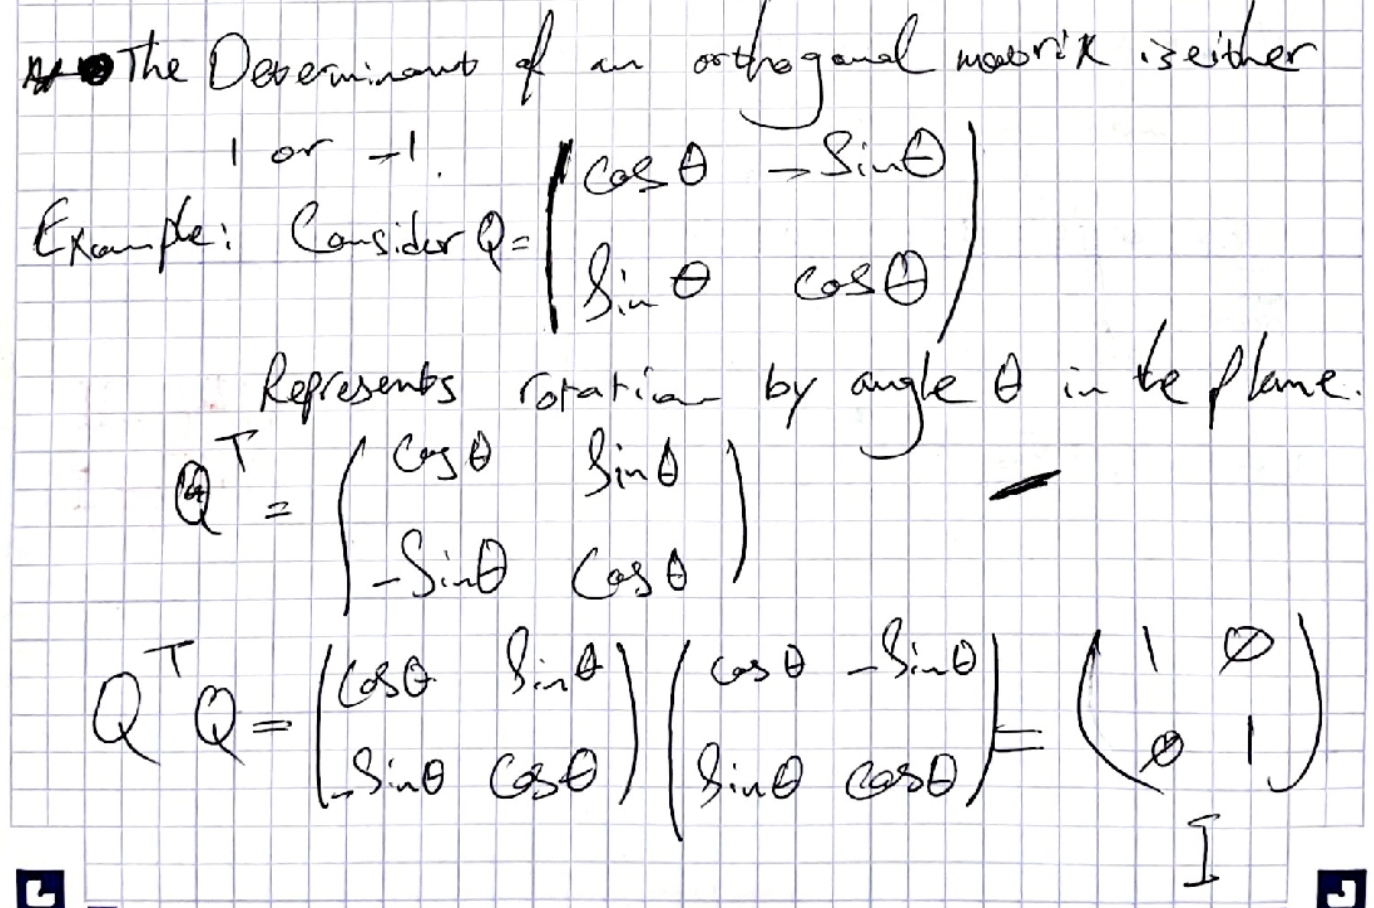 The Determinant of an orthogonal matrix is either
1 or -1.
Example: Consider Q = ( cos θ   - Sin θ
Sin θ   cos θ )
Represents rotation by angle θ in the plane.
Q^T = ( cos θ   Sin θ
- Sin θ   Cos θ )
Q^T Q = ( cos θ   Sin θ
- Sin θ   Cos θ ) ( cos θ   - Sin θ
Sin θ   cos θ ) = ( 1   0
0   1 )
I